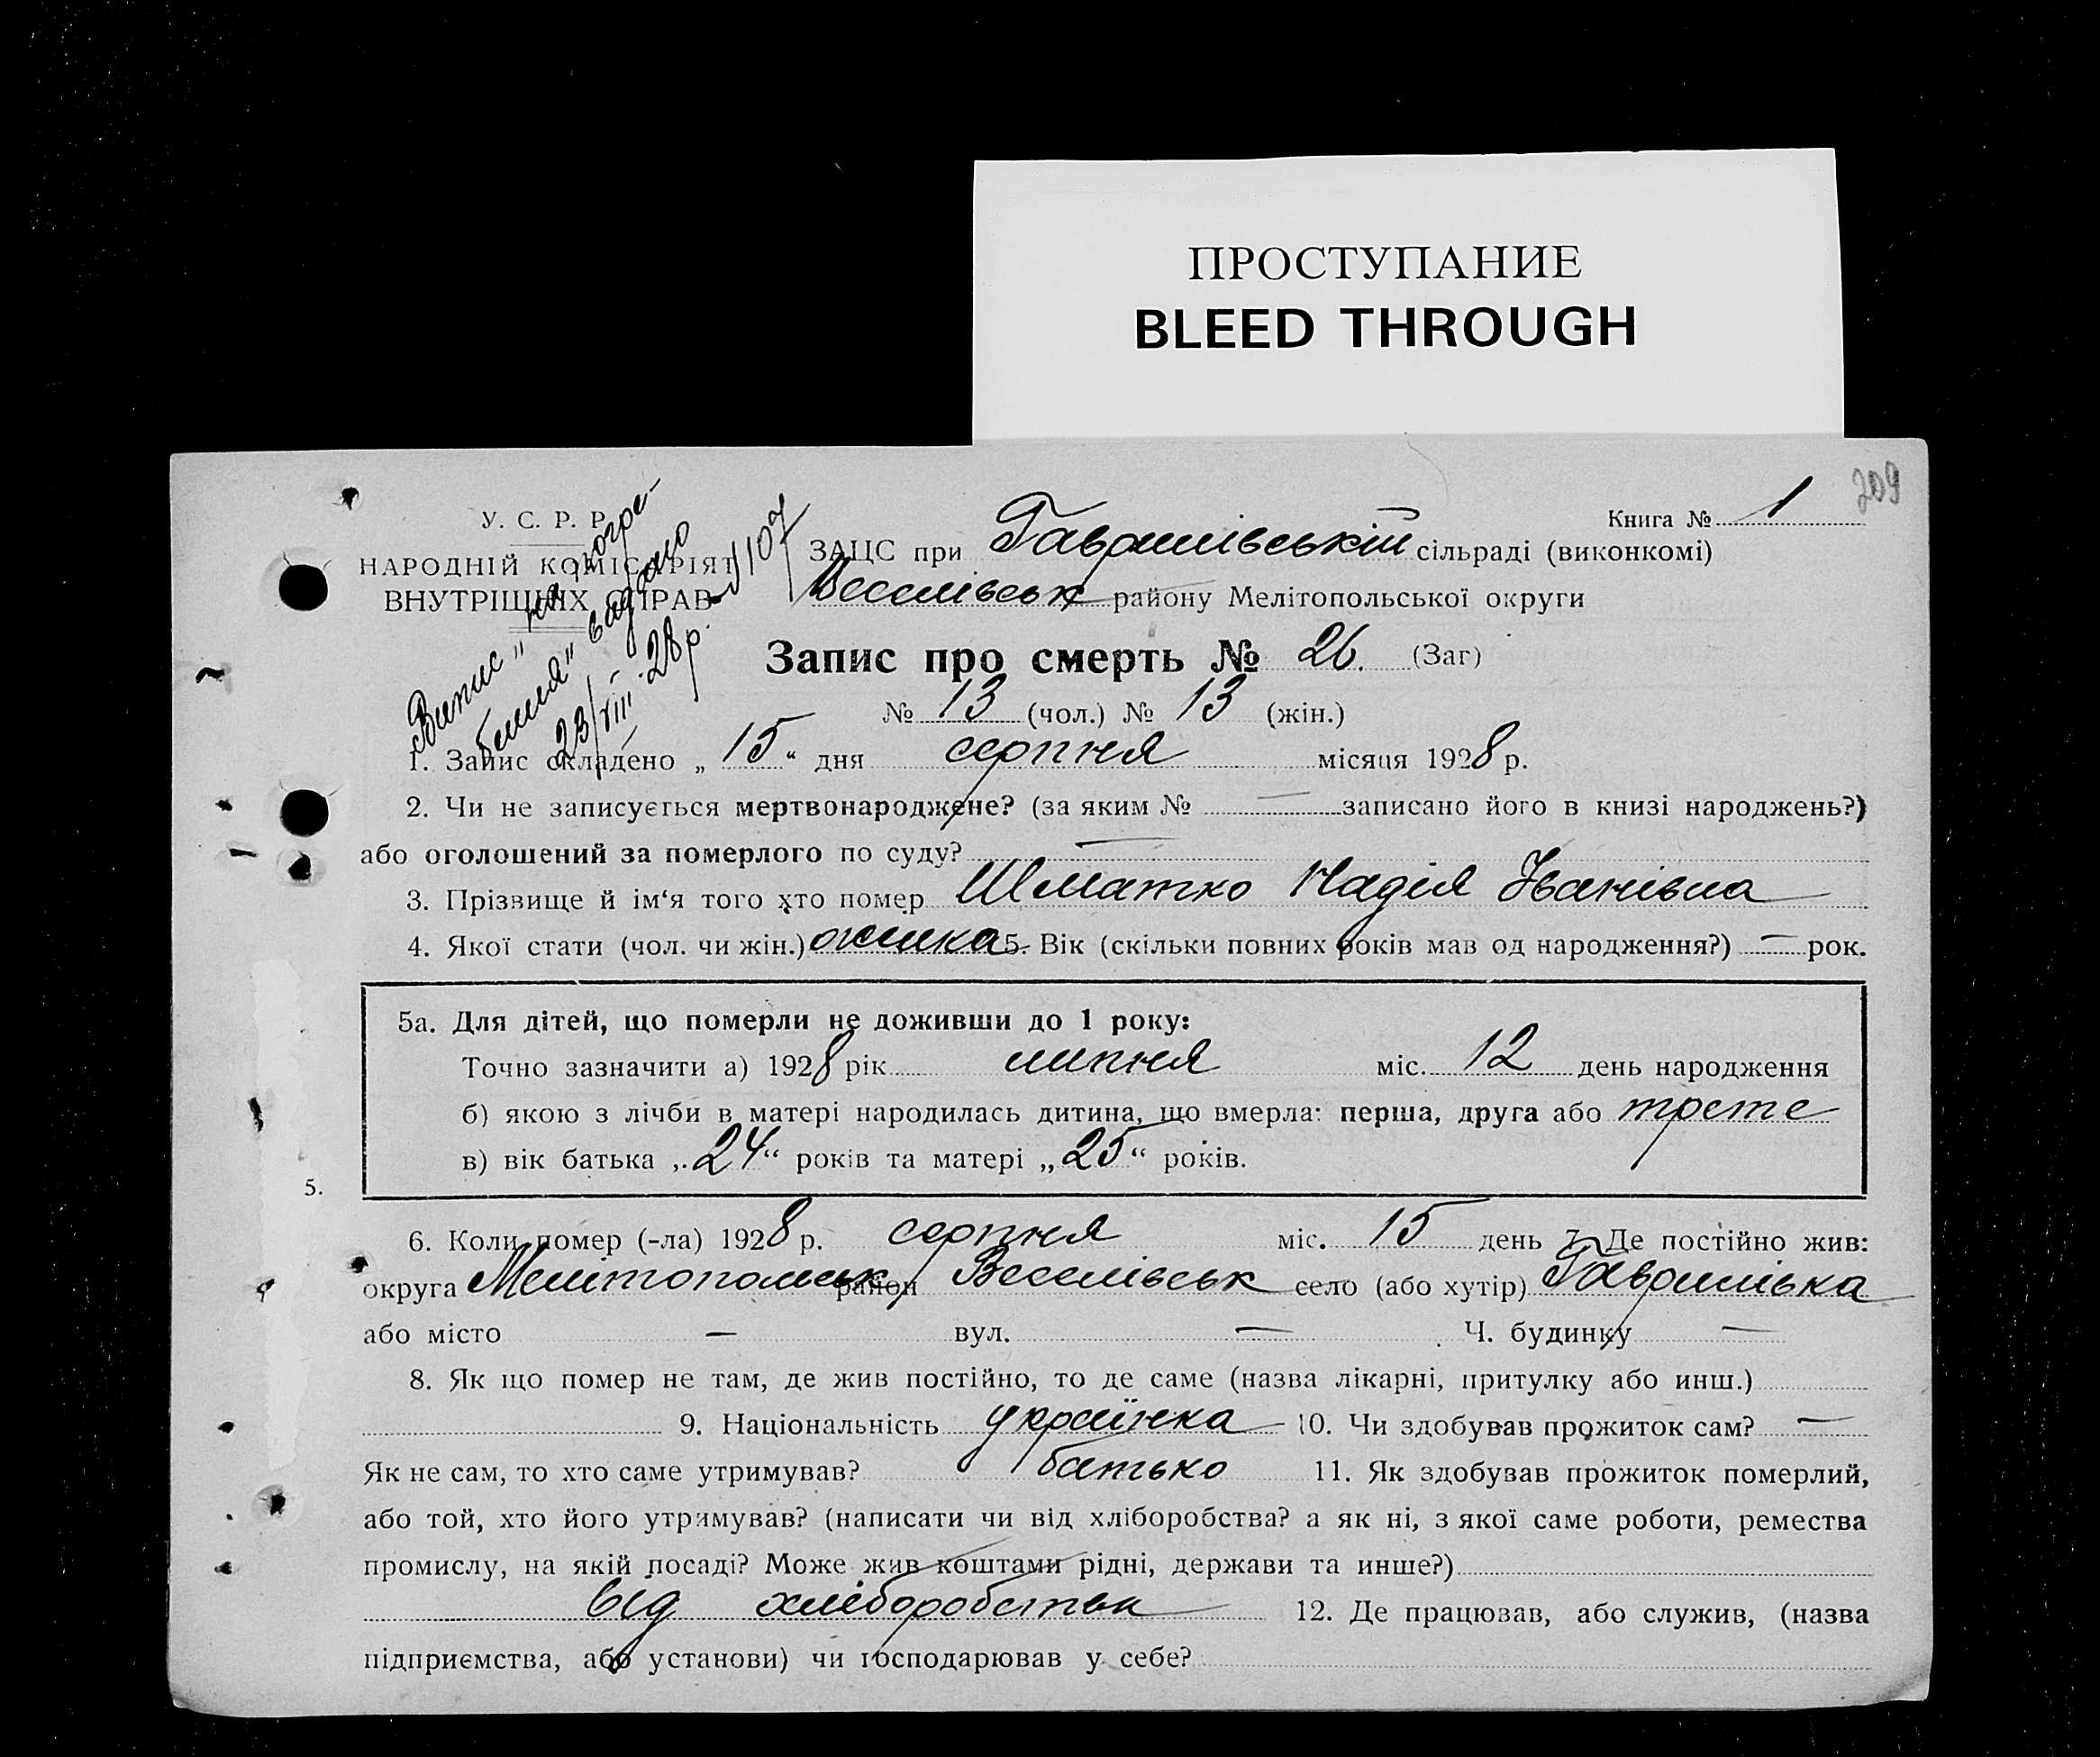 ПРОСТУПАНИЕ
BLEED THROUGH
209
У. С. Р. Р.
НАРОДНІЙ КОМІСАРІЯТ
ВНУТРІШНІХ СПРАВ
Випис „на погре-
бення“ видано
23/VIII-28 р. № 107
Книга № 1
ЗАЦС при Гаврилівській сільраді (виконкомі)
Веселівськ району Мелітопольської округи
Запис про смерть № 26. (Заг)
№ 13 (чол.) № 13 (жін.)
1. Запис складено „ 15 “ дня серпня місяця 1928 р.
2. Чи не записується мертвонароджене? (за яким № — записано його в книзі народжень?)
або оголошений за померлого по суду? —
3. Прізвище й ім‘я того хто помер Шматко Надія Іванівна
4. Якої стати (чол. чи жін.) жінка 5. Вік (скільки повних років мав од народження?) — рок.
5а. Для дітей, що померли не доживши до 1 року:
Точно зазначити а) 1928 рік липня міс. 12 день народження
б) якою з лічби в матері народилась дитина, що вмерла: перша, друга або трете
в) вік батька „ 24 “ років та матері „ 25 “ років.
5.
6. Коли помер (-ла) 1928 р. серпня міс. 15 день 7. Де постійно жив:
округа Мелітопольськ район Веселівськ село (або хутір) Гаврилівка
або місто — вул. — Ч. будинку —
8. Як що помер не там, де жив постійно, то де саме (назва лікарні, притулку або инш.)
9. Національність українка 10. Чи здобував прожиток сам? —
Як не сам, то хто саме утримував? батько 11. Як здобував прожиток померлий,
або той, хто його утримував? (написати чи від хліборобства? а як ні, з якої саме роботи, ремества
промислу, на якій посаді? Може жив коштами рідні, держави та инше?)
від хліборобства 12. Де працював, або служив, (назва
підприємства, або установи) чи господарював у себе?